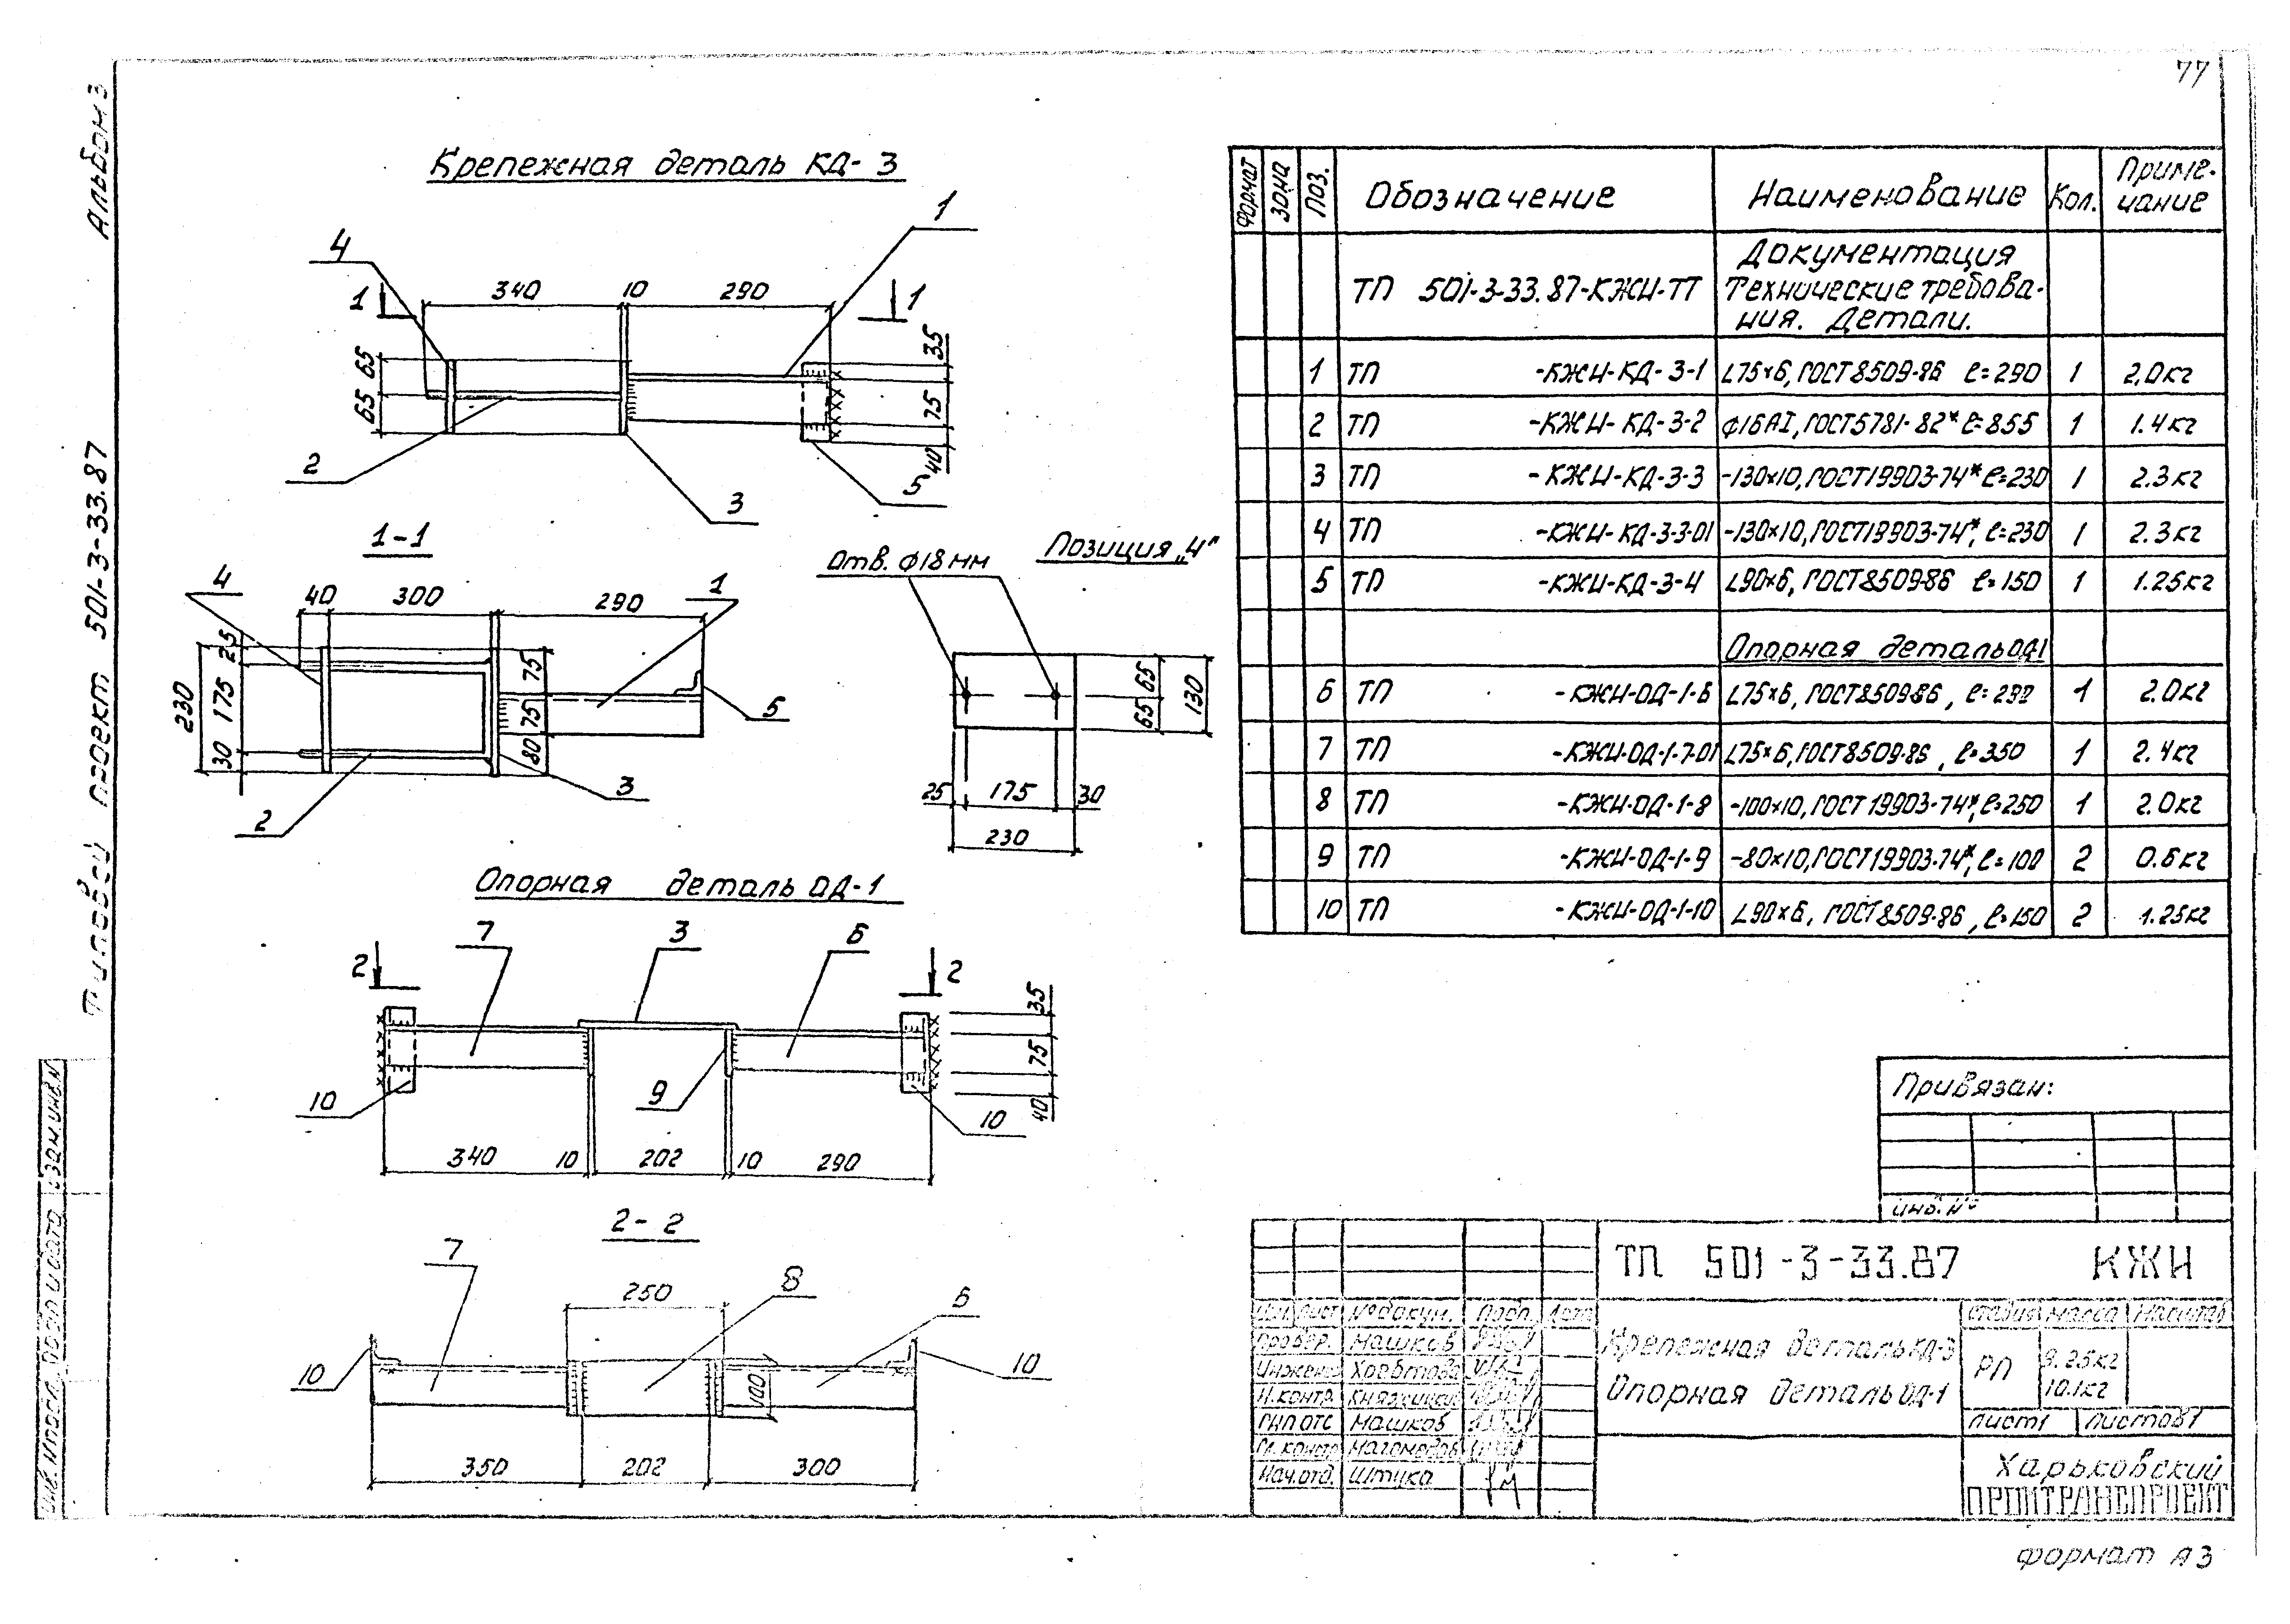 77
Альбом 3
Типовой проект 501-3-33.87
Крепежная деталь КД-3
1
4
1 340 10 290 1
65
65
35
75
40
2
3
5
1-1
4
40 300 290
1
25
175
30
230
75
75
80
5
3
2
Позиция „4"
Отв. ф18мм
65
65
130
25 175 30
230
Опорная деталь ОД-1
7 3 6
2 2
35
75
40
10 9 10
340 10 202 10 290
2-2
7 250 8 6
10 10
100
350 202 300
Формат Зона Поз. Обозначение Наименование Кол. Приме-
чание
Документация
ТП 501-3-33.87-КЖИ-ТТ Технические требова-
ния. Детали.
1 ТП -КЖИ-КД-3-1 L75×6, ГОСТ 8509-86 ℓ=290 1 2,0кг
2 ТП -КЖИ-КД-3-2 ф16АI, ГОСТ5781-82* ℓ=855 1 1.4кг
3 ТП -КЖИ-КД-3-3 -130×10, ГОСТ19903-74* ℓ=230 1 2.3кг
4 ТП -КЖИ-КД-3-3-01 -130×10, ГОСТ19903-74*, ℓ=230 1 2.3кг
5 ТП -КЖИ-КД-3-4 L90×6, ГОСТ8509-86 ℓ=150 1 1.25кг
Опорная деталь ОД1
6 ТП -КЖИ-ОД-1-6 L75×6, ГОСТ8509-86, ℓ=290 1 2.0кг
7 ТП -КЖИ-ОД-1-7-01 L75×6, ГОСТ8509-86, ℓ=350 1 2.4кг
8 ТП -КЖИ-ОД-1-8 -100×10, ГОСТ 19903-74*, ℓ=250 1 2.0кг
9 ТП -КЖИ-ОД-1-9 -80×10, ГОСТ19903-74*, ℓ=100 2 0.6кг
10 ТП -КЖИ-ОД-1-10 L90×6, ГОСТ8509-86, ℓ=150 2 1.25кг
Привязан:
Инв. №
ТП 501-3-33.87 КЖИ
Изм. Лист №докум. Подп. Дата
Провер. Машков
Инженер
Н.контр.
ГИП ОТС Машков
Гл. констр. Магомедов
Нач.отд. Штука
Крепежная деталь КД-3
Опорная деталь ОД-1
Стадия Масса Масштаб
РП 9.25кг
10.1кг
Лист 1 Листов 1
Харьковский
ПРОМТРАНСПРОЕКТ
Инв. № подл. Подп. и дата Взам. инв. №
Формат А3